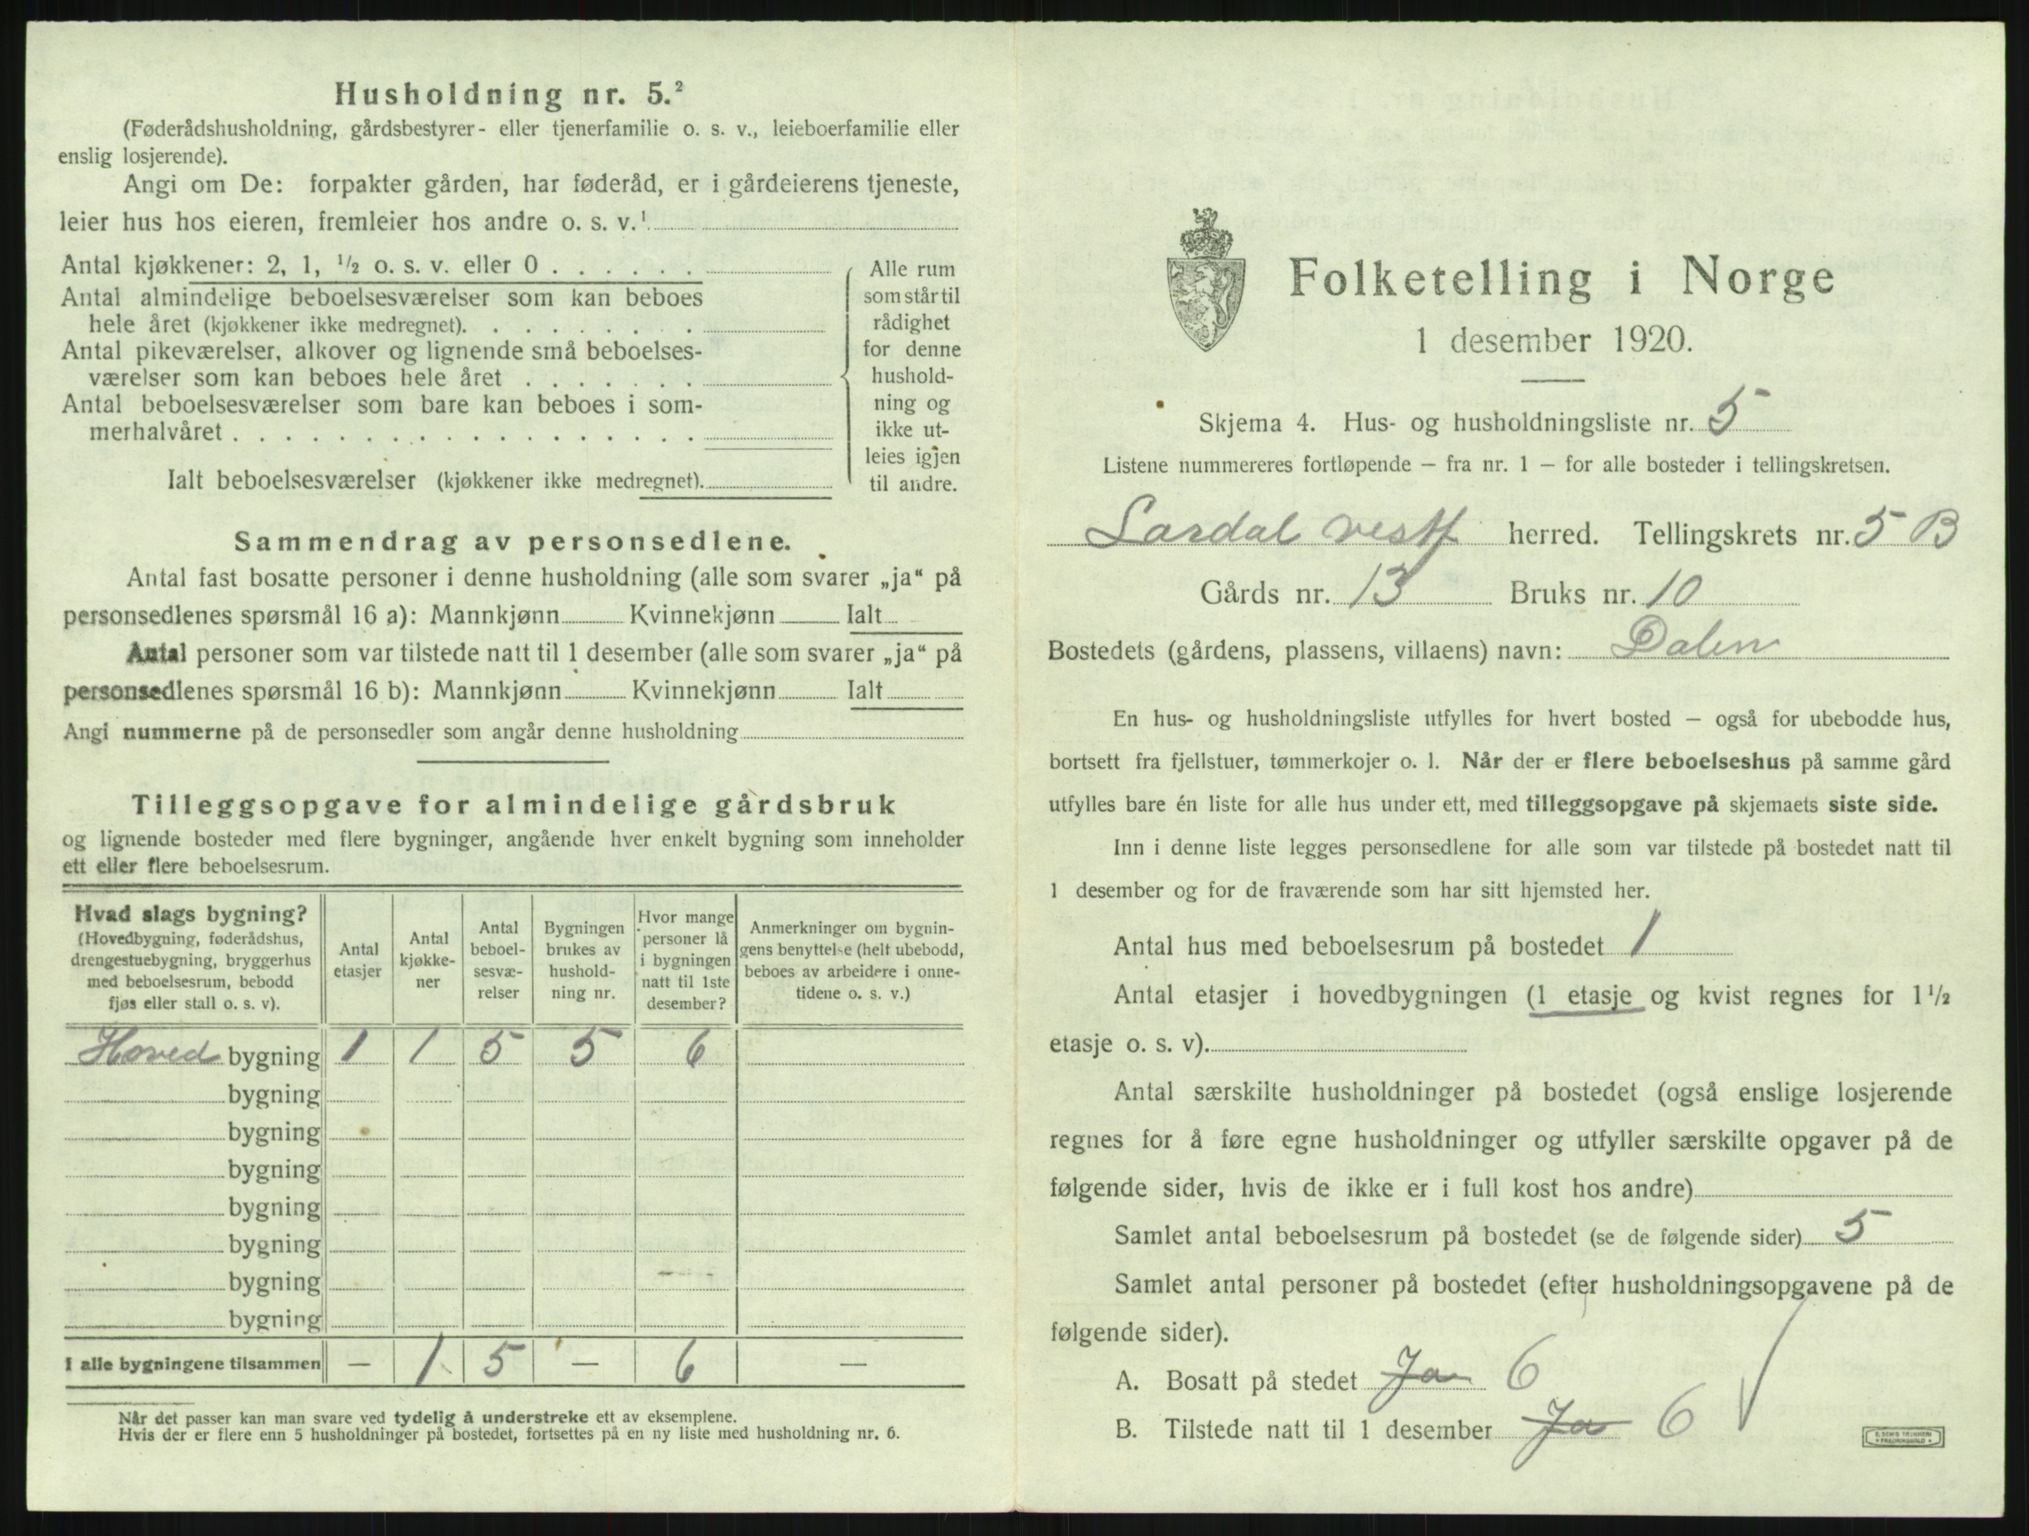 Husholdning nr. 5.²
(Føderådshusholdning, gårdsbestyrer- eller tjenerfamilie o. s. v., leieboerfamilie eller
enslig losjerende).
Angi om De: forpakter gården, har føderåd, er i gårdeierens tjeneste,
leier hus hos eieren, fremleier hos andre o. s. v.¹
Antal kjøkkener: 2, 1, ½ o. s. v. eller 0
Antal almindelige beboelsesværelser som kan beboes
hele året (kjøkkener ikke medregnet).
Antal pikeværelser, alkover og lignende små beboelses-
værelser som kan beboes hele året
Antal beboelsesværelser som bare kan beboes i som-
merhalvåret
Ialt beboelsesværelser (kjøkkener ikke medregnet).
Alle rum
som står til
rådighet
for denne
hushold-
ning og
ikke ut-
leies igjen
til andre.
Sammendrag av personsedlene.
Antal fast bosatte personer i denne husholdning (alle som svarer „ja“ på
personsedlenes spørsmål 16 a): Mannkjønn Kvinnekjønn Ialt
Antal personer som var tilstede natt til 1 desember (alle som svarer „ja“ på
personsedlenes spørsmål 16 b): Mannkjønn Kvinnekjønn Ialt
Angi nummerne på de personsedler som angår denne husholdning
Tilleggsopgave for almindelige gårdsbruk
og lignende bosteder med flere bygninger, angående hver enkelt bygning som inneholder
ett eller flere beboelsesrum.
Hvad slags bygning?
(Hovedbygning, føderådshus,
drengestuebygning, bryggerhus
med beboelsesrum, bebodd
fjøs eller stall o. s. v).
Antal
etasjer
Antal
kjøkke-
ner
Antal
beboel-
sesvæ-
relser
Bygningen
brukes av
hushold-
ning nr.
Hvor mange
personer lå
i bygningen
natt til 1ste
desember?
Anmerkninger om bygnin-
gens benyttelse (helt ubebodd,
beboes av arbeidere i onne-
tidene o. s. v.)
Hoved bygning 1 1 5 5 6
bygning
bygning
bygning
bygning
bygning
bygning
bygning
I alle bygningene tilsammen — 1 5 — 6 —
Når det passer kan man svare ved tydelig å understreke ett av eksemplene.
Hvis der er flere enn 5 husholdninger på bostedet, fortsettes på en ny liste med husholdning nr. 6.
Folketelling i Norge
1 desember 1920.
Skjema 4. Hus- og husholdningsliste nr. 5
Listene nummereres fortløpende – fra nr. 1 – for alle bosteder i tellingskretsen.
Lardal vestf herred. Tellingskrets nr. 5 B
Gårds nr. 13 Bruks nr. 10
Bostedets (gårdens, plassens, villaens) navn: Dalen
En hus- og husholdningsliste utfylles for hvert bosted – også for ubebodde hus,
bortsett fra fjellstuer, tømmerkojer o. l. Når der er flere beboelseshus på samme gård
utfylles bare én liste for alle hus under ett, med tilleggsopgave på skjemaets siste side.
Inn i denne liste legges personsedlene for alle som var tilstede på bostedet natt til
1 desember og for de fraværende som har sitt hjemsted her.
Antal hus med beboelsesrum på bostedet 1
Antal etasjer i hovedbygningen (1 etasje og kvist regnes for 1½
etasje o. s. v).
Antal særskilte husholdninger på bostedet (også enslige losjerende
regnes for å føre egne husholdninger og utfyller særskilte opgaver på de
følgende sider, hvis de ikke er i full kost hos andre)
Samlet antal beboelsesrum på bostedet (se de følgende sider) 5
Samlet antal personer på bostedet (efter husholdningsopgavene på de
følgende sider).
A. Bosatt på stedet Ja 6
B. Tilstede natt til 1 desember Ja 6